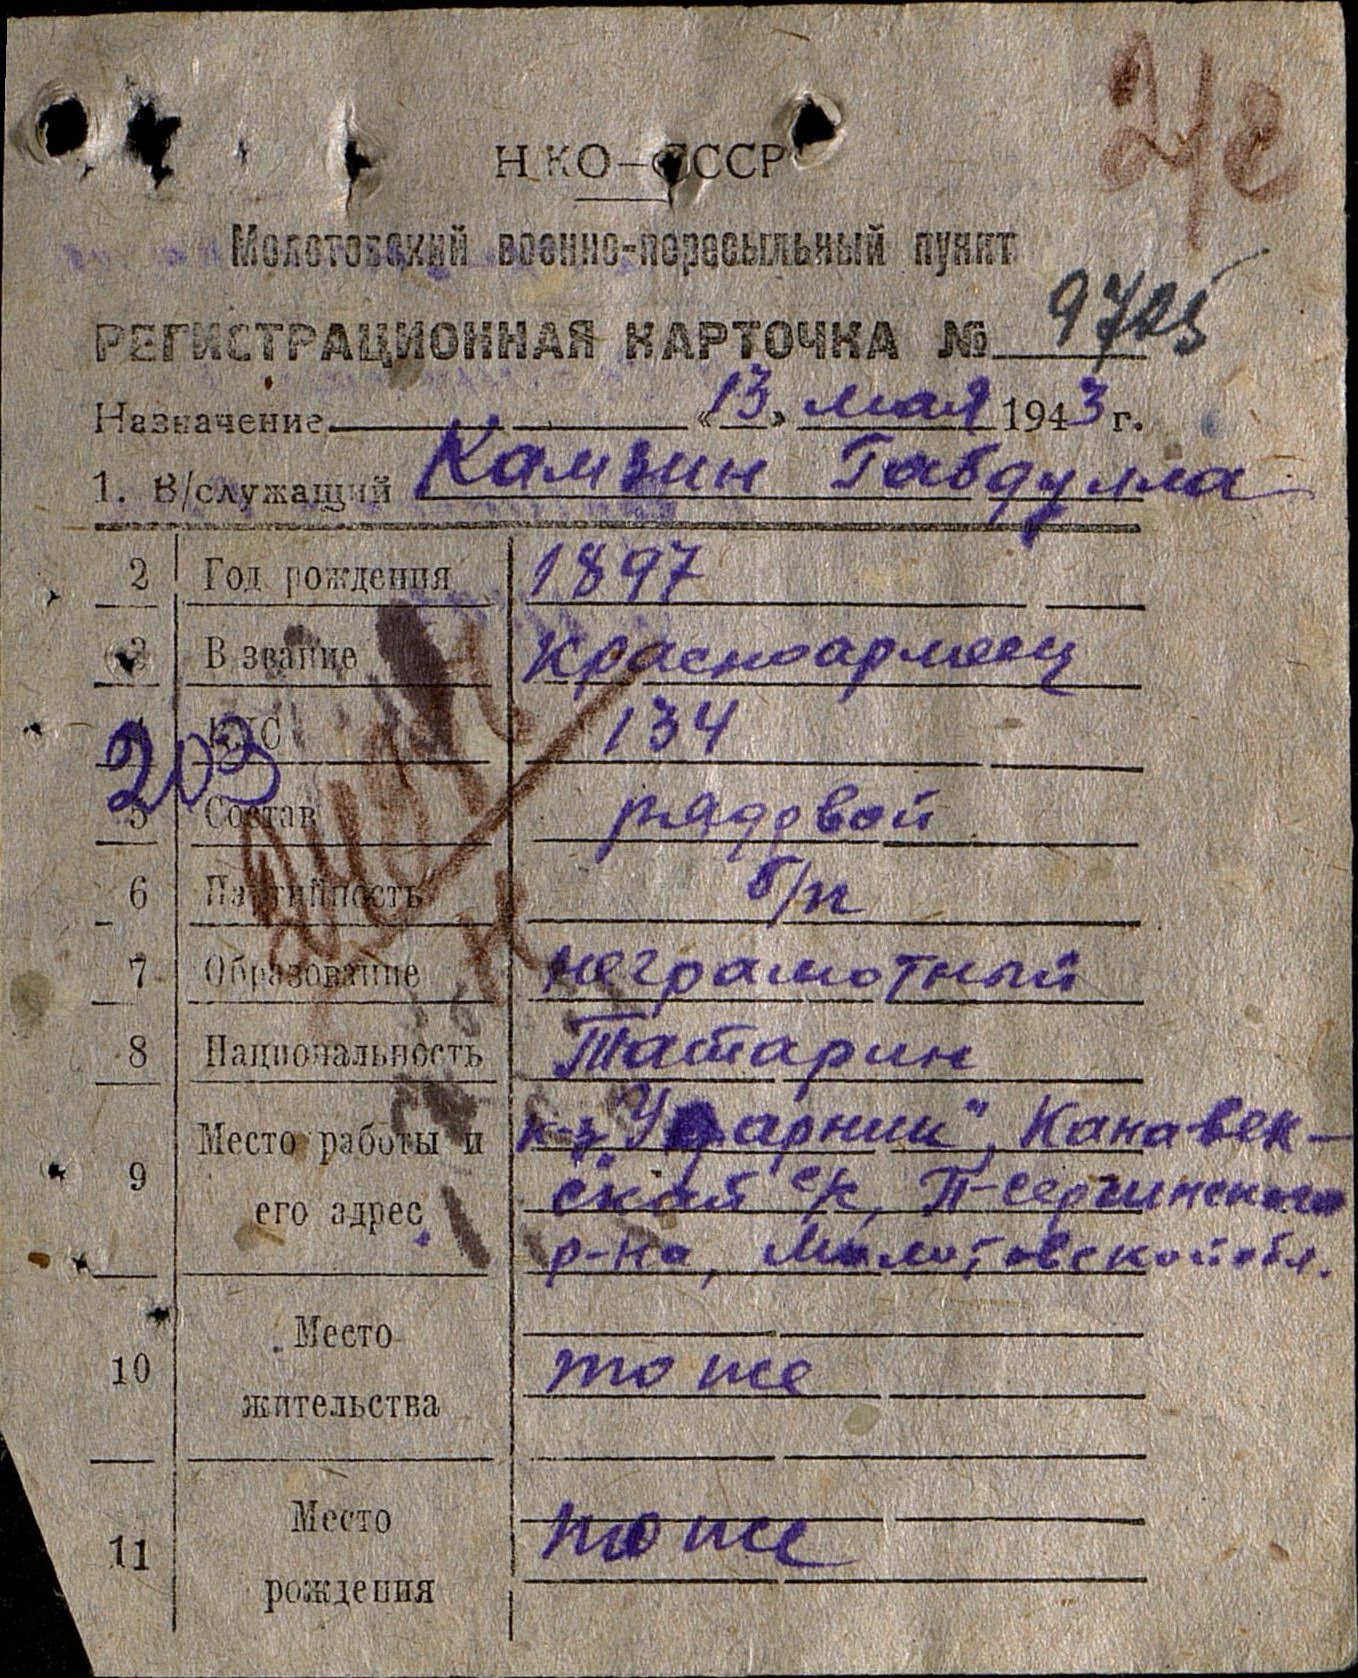 2/8
НКО—СССР
Молотовский военно-пересыльный пункт
РЕГИСТРАЦИОННАЯ КАРТОЧКА № 9725
Назначение «13» мая 1943 г.
1. В/служащий Камзин Габдулла
2 Год рождения 1897
3 В звание красноармеец
ВУС 134
203
5 Состав рядовой
6 Партийность б/п
7 Образование неграмотный
8 Национальность Татарин
9 Место работы и его адрес к-з „Ударник", Канавек-
ский с/с, П-Сергинского
р-на, Молотовской обл.
10 Место жительства то же
11 Место рождения то же